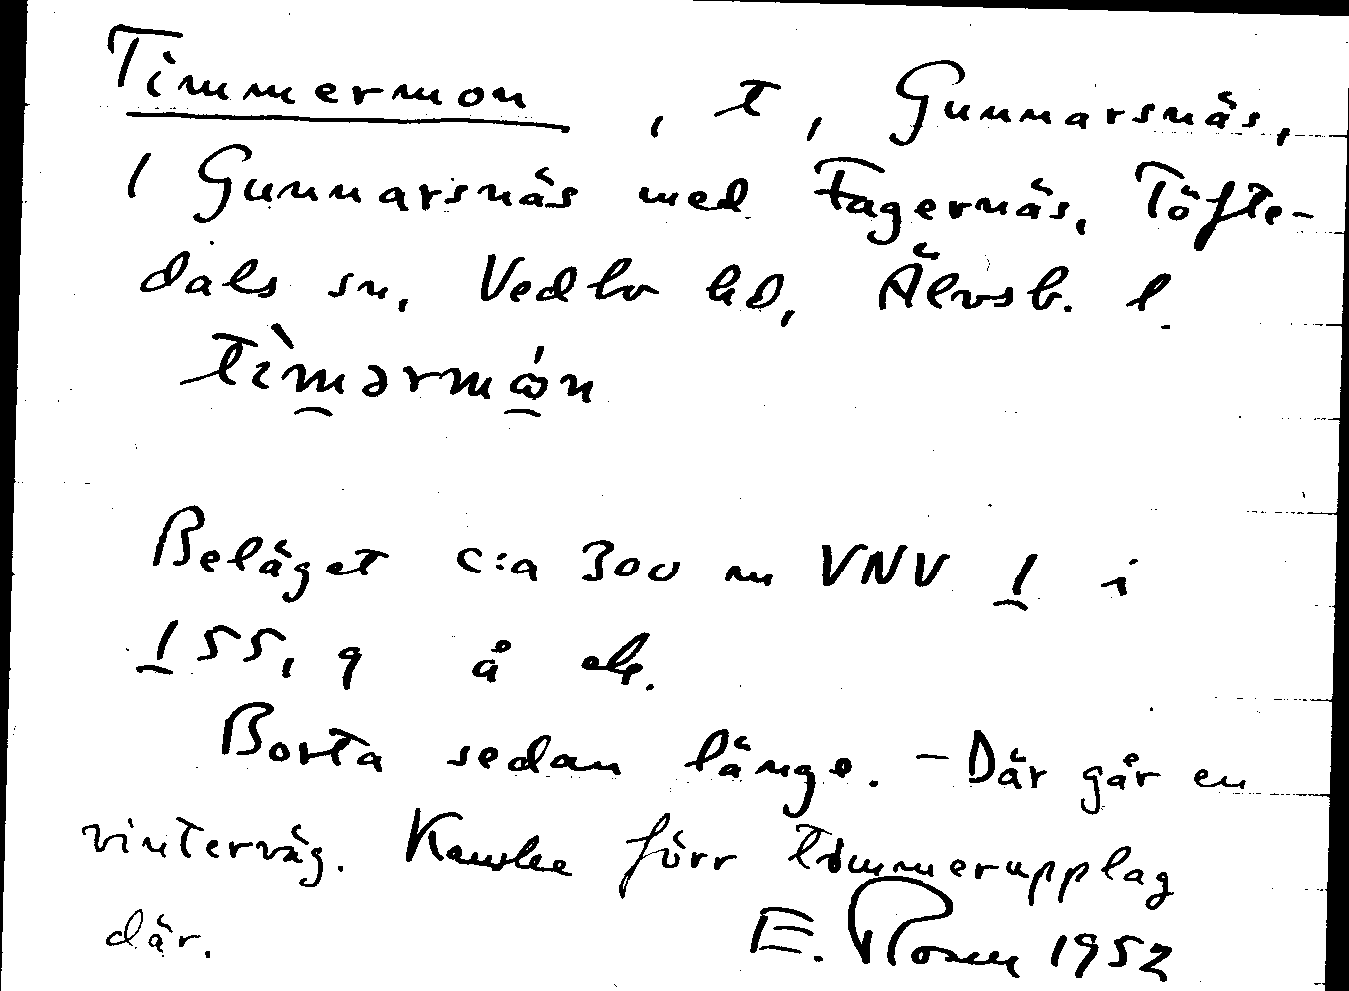 Timmermon, t, Gunnarsnäs,
1 Gunnarsnäs med Fagernäs, Töfte-
dals sn, Vedbo hd, Älvsb. l.
tìmərmón
Beläget c:a 300 m VNV 1 i
155, 9 å ek.
Borta sedan länge. - Där går en
vinterväg. Kanske förr timmerupplag
där. E. Rosen 1952